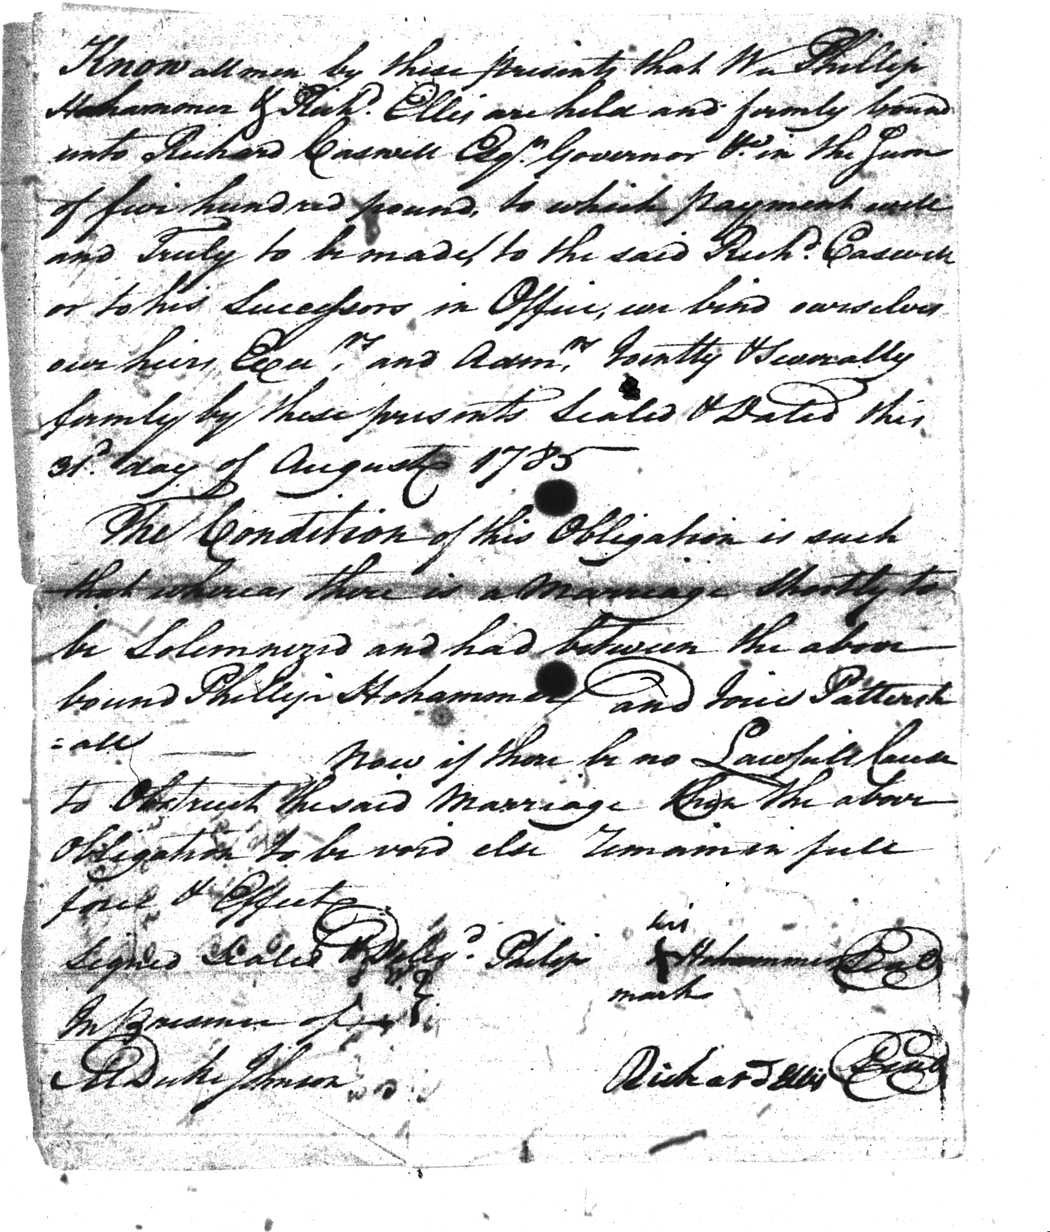 Know all men by these presents that We Phillip
Hohammer & Richd. Ellis are held and firmly bound
unto Richard Caswell Esqr. Governor &c in the Sum
of five hundred pound, to which payment well
and Truly to be made, to the said Richd. Caswell
or to his Successors in Office, we bind ourselves
our heirs, Exeu.rs, and Admrs, Jointly & Severally
firmly by these presents Sealed & Dated this
31st. day of August 1785
The Condition of this Obligation is such
that whereas there is a Marriage Shortly to
be Solemnized and had between the above
bound Phillip Hohammer and
=all Now if there be no Lawfull Cause
to Obstruct the said Marriage then the above
Obligation to be void else Remain in full
force & Effect
Signed Sealed & Delivd. Philip his Hohammer Seal
mark
In Presence of
Duke Johnson Richard Ellis Seal